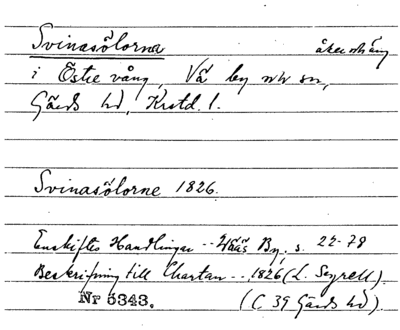 Svinasölorna åker och äng
i Östre vång, Vä by och sn,
Gärds hd, Krstd. l.
Svinasölorne 1826.
Enskiftes Handlingar -- Wäås By, s. 22-78
Beskrifning till Chartan -- 1826 (L. Seyrell).
Nr 5343. (C 39 Gärds hd).